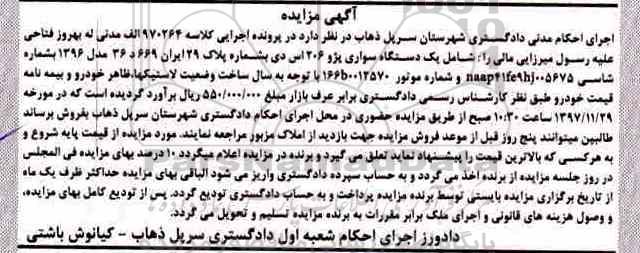 آگهی مزایده
اجرای احکام مدنی دادگستری شهرستان سرپل ذهاب در نظر دارد در پرونده اجرایی کلاسه ۹۷۰۲۶۴ الف مدنی له بهروز فتاحی
علیه رسول میرزایی مالی را: شامل یک دستگاه سواری پژو ۲۰۶ اس دی بشماره پلاک ۲۹ ایران ۶۶۹ د ۳۶ مدل ۱۳۹۶ بشماره
شاسی naap۴۱fe۹hj۰۰۵۶۷۵ و شماره موتور ۱۶۶b۰۰۱۲۵۷۰ با توجه به سال ساخت وضعیت لاستیکها،ظاهر خودرو و بیمه نامه
قیمت خودرو طبق نظر کارشناس رسمی دادگستری برابر عرف بازار مبلغ ۵۵۰/۰۰۰/۰۰۰ ریال برآورد گردیده است که در مورخه
۱۳۹۷/۱۱/۲۹ ساعت ۱۰:۳۰ صبح از طریق مزایده حضوری در محل اجرای احکام دادگستری شهرستان سرپل ذهاب بفروش برساند
طالبین میتوانند پنج روز قبل از موعد فروش مزایده جهت بازدید از املاک مزبور مراجعه نمایند. مورد مزایده از قیمت پایه شروع و
به هرکسی که بالاترین قیمت را پیشنهاد نماید تعلق می گیرد و برنده در مزایده اعلام میگردد ۱۰ درصد بهای مزایده فی المجلس
در روز جلسه مزایده از برنده اخذ می گردد و به حساب سپرده دادگستری واریز می شود الباقی بهای مزایده حداکثر ظرف یک ماه
از تاریخ برگزاری مزایده بایستی توسط برنده مزایده پرداخت و به حساب دادگستری تودیع گردد. پس از تودیع کامل بهای مزایده،
و وصول هزینه های قانونی و اجرای ملک برابر مقررات به برنده مزایده تسلیم و تحویل می گردد.
دادورز اجرای احکام شعبه اول دادگستری سرپل ذهاب - کیانوش باشتی